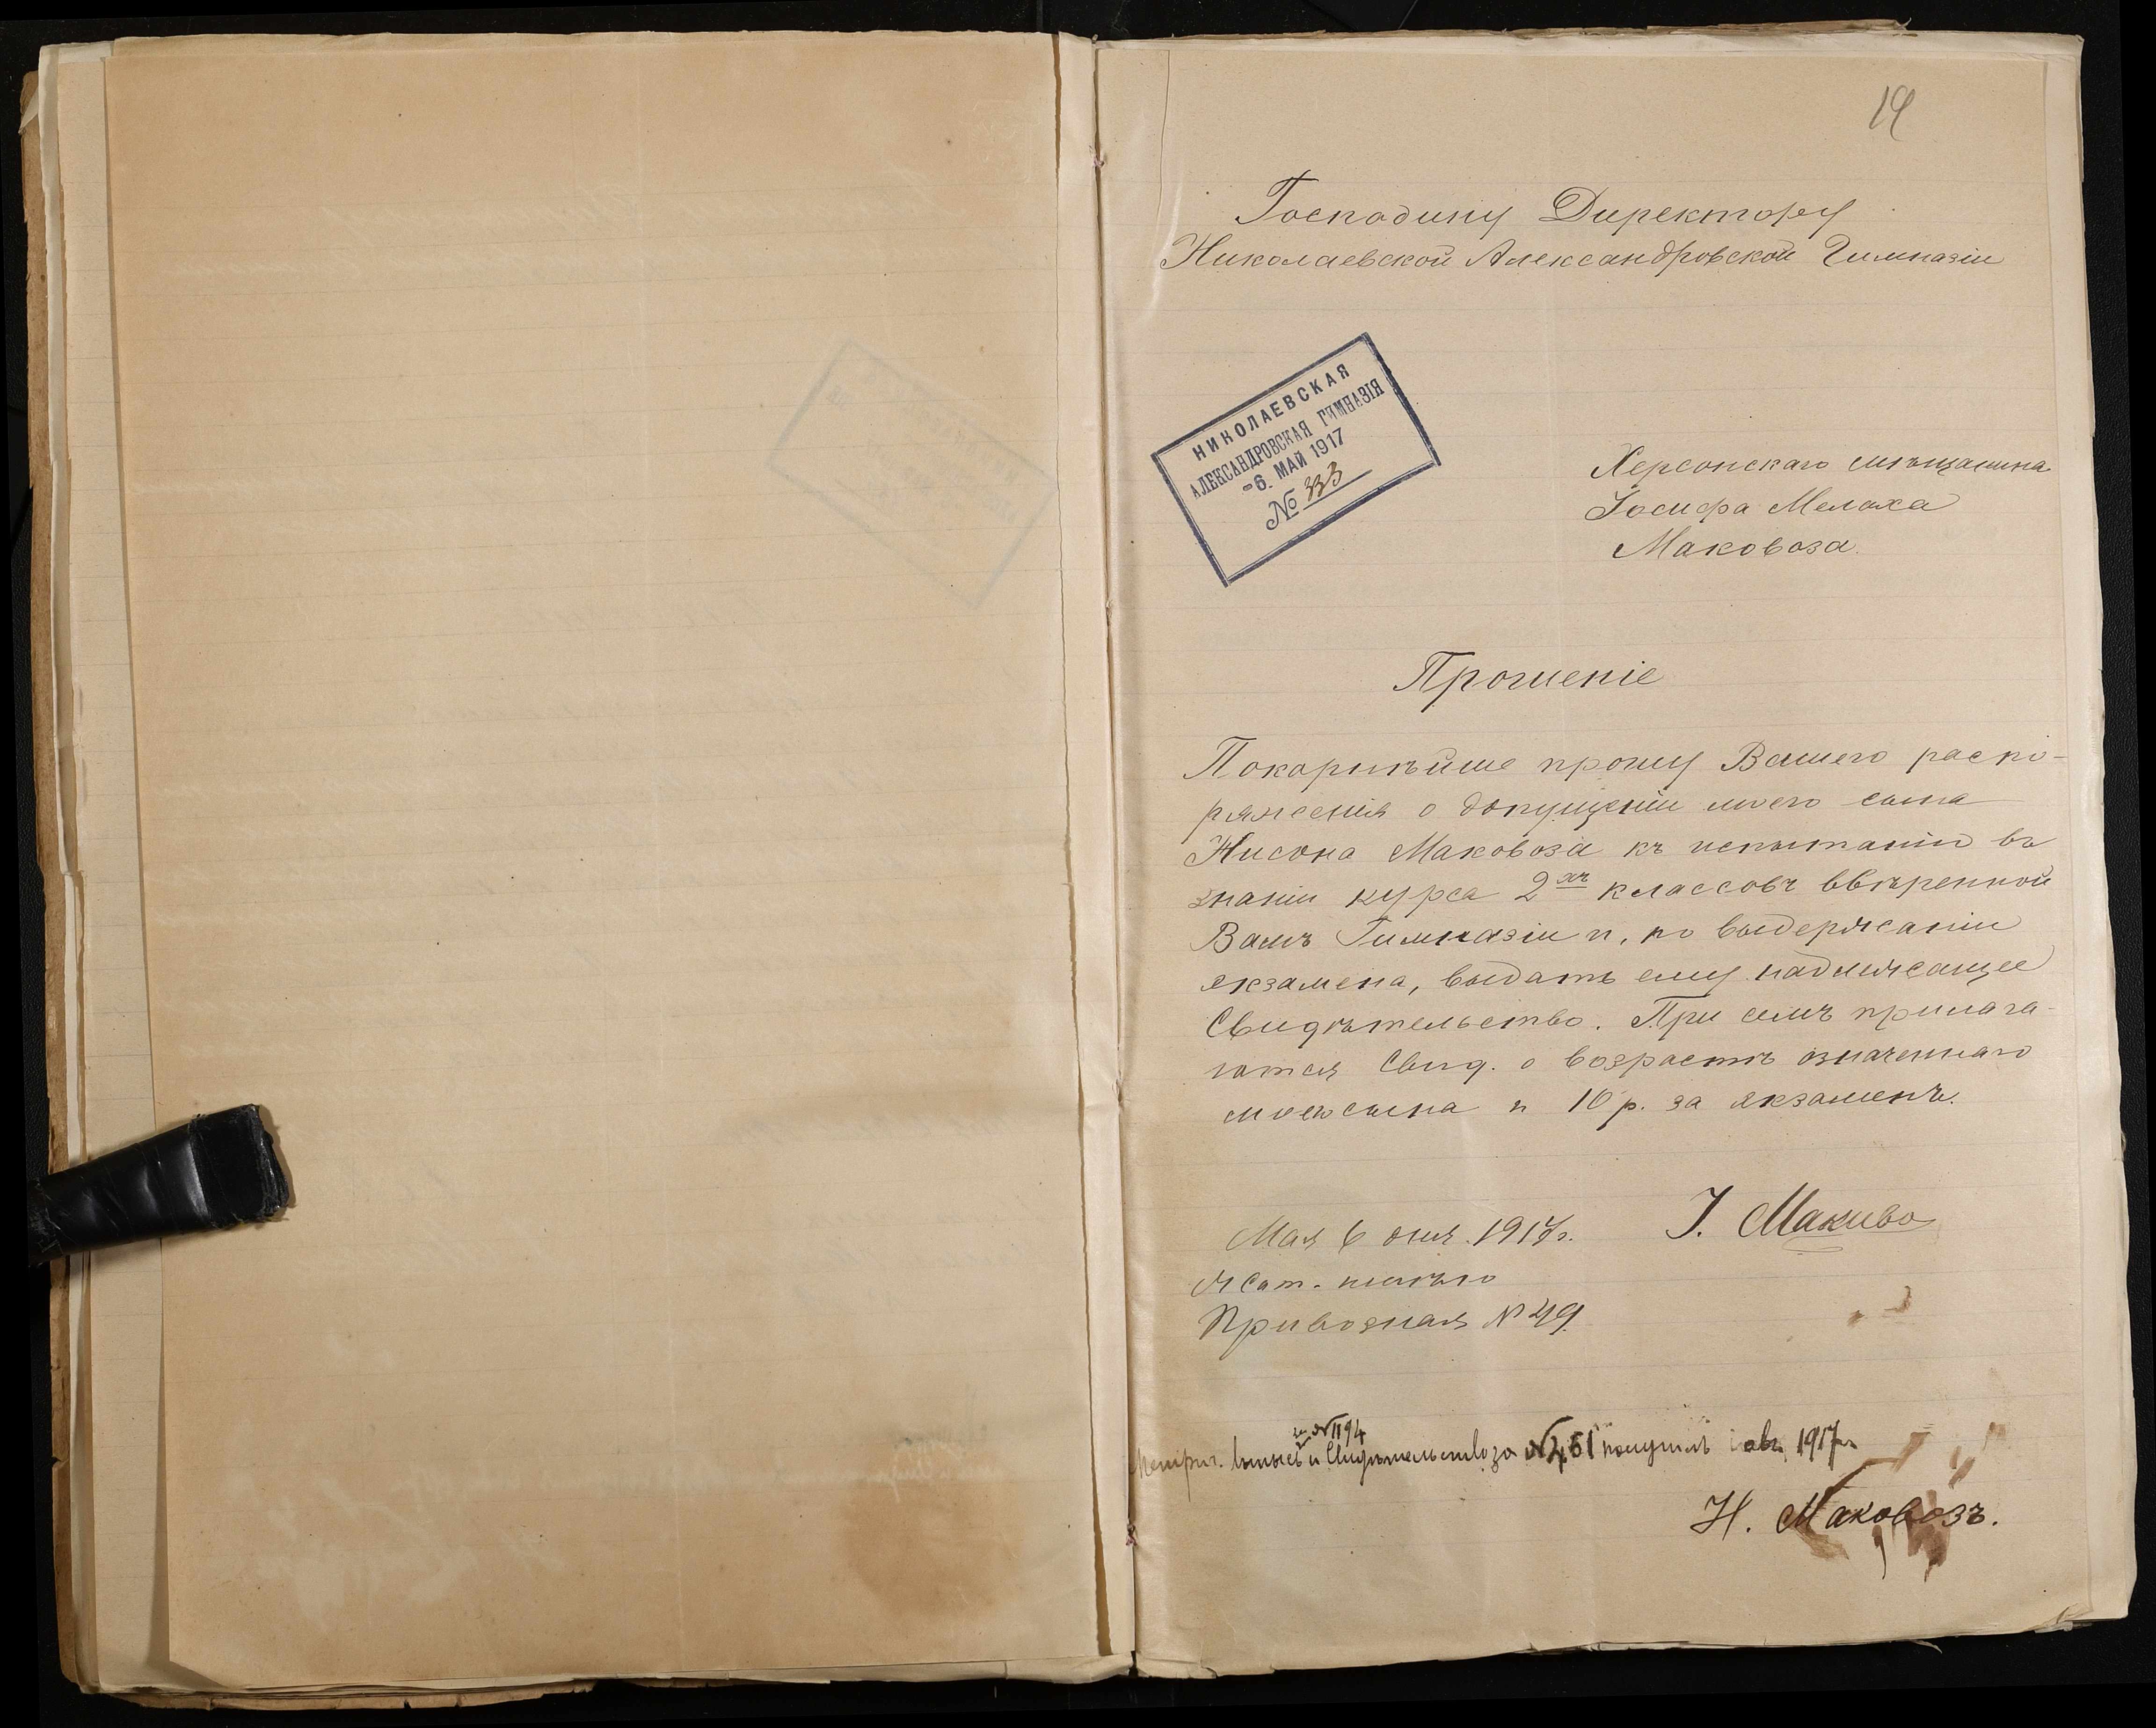 19
Господину Директору
Николаевской Александровской Гимназіи
НИКОЛАЕВСКАЯ
АЛЕКСАНДРОВСКАЯ ГИМНАЗІЯ
-6. МАЙ 1917
№ 333
Херсонскаго мѣщанина
Іосифа Мелаха
Маковоза.
Прошеніе
Покорнѣйше прошу Вашего распо-
ряженія о допущеніи моего сына
Нисона Маковоза къ испытанію въ
знаніи курса 2хъ классовъ ввѣренной
Вамъ Гимназіи и, по выдержаніи
экзамена, выдать ему надлежащее
Свидѣтельство. При семъ прилага-
ются Свид. о возрастѣ означеннаго
моего сына и 10 р. за экзаменъ.
Мая 6 дня. 1917г.
І. Маково
Жит. имѣю
Привозная № 49.
за № 1194
Метрич. выпись и Свидѣтельство за № 451 получилъ авг. 1917г.
Н. Маковозъ.